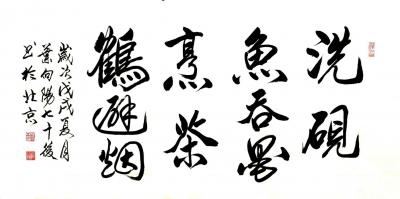 洗硯
魚吞墨
烹茶
鶴避烟
歲次戊戌夏月
葉向陽七十後
書於北京